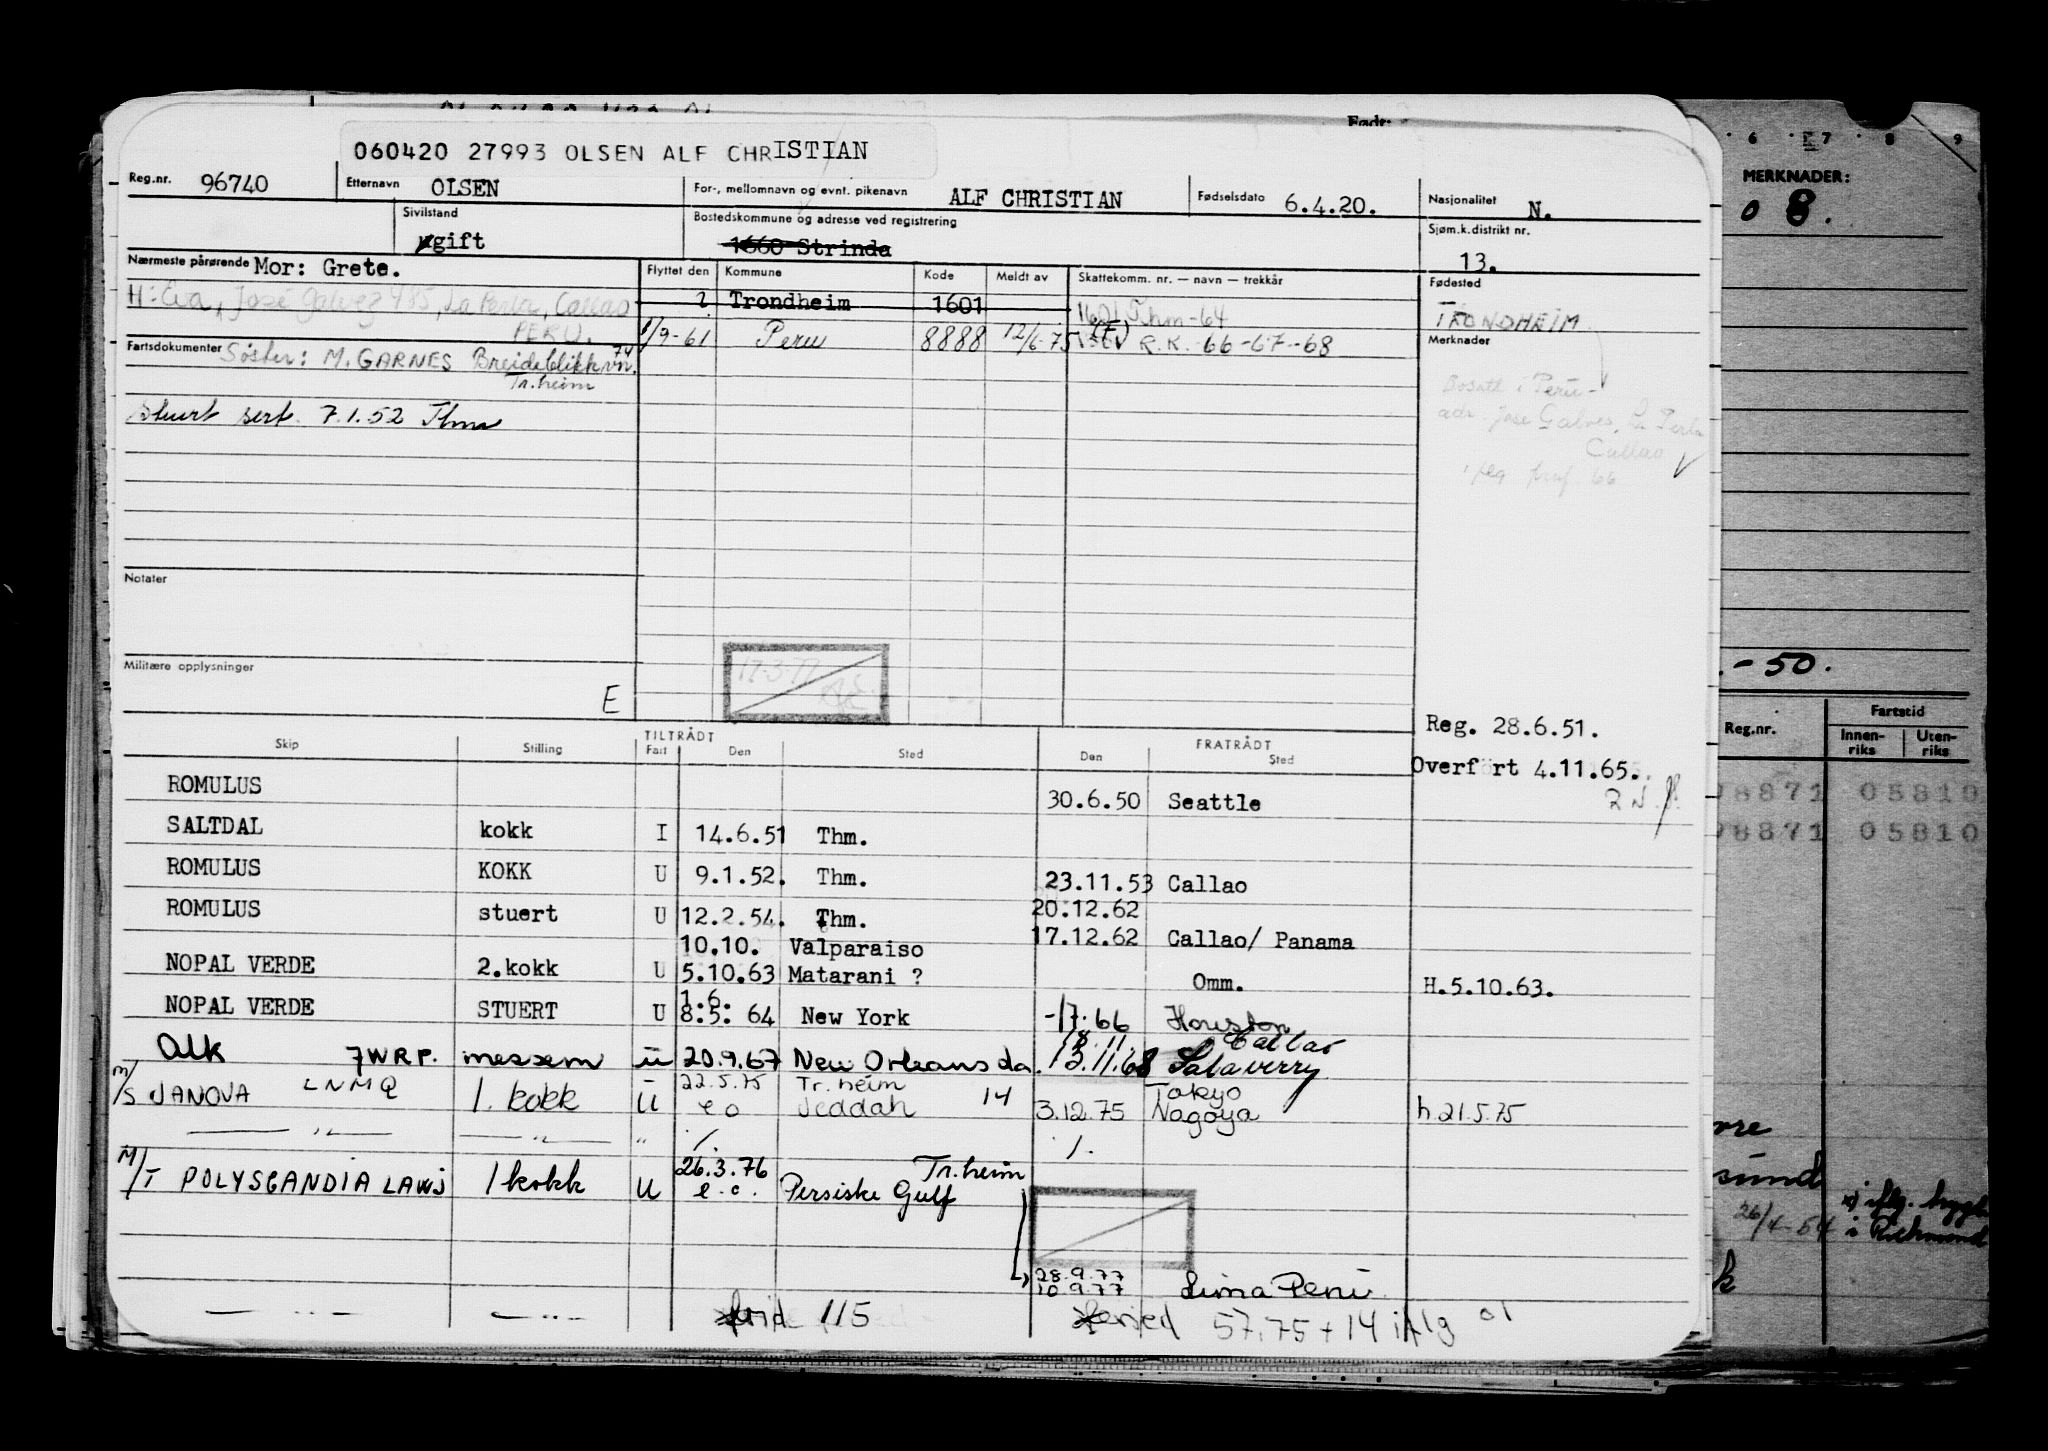 Født:
060420 27993 OLSEN ALF CHRISTIAN
Reg.nr. 96740 Etternavn OLSEN For-, mellomnavn og evnt. pikenavn ALF CHRISTIAN Fødselsdato 6.4.20. Nasjonalitet N.
Sivilstand gift Bostedskommune og adresse ved registrering 1660 Strinda Sjøm.k.distrikt nr. 13.
Nærmeste pårørende Mor: Grete. Flyttet den Kommune Kode Meldt av Skattekomm. nr. — navn — trekkår Fødested
H: Eva, José Galvez 485, La Perla, Callao ? Trondheim 1601 1601 Thm-64 TRONDHEIM
PERU. 1/9-61 Peru 8888 12/6-75 (F) R.K. 66-67-68 Merknader
Fartsdokumenter Søster: M. GARNES Breideblikkvn. 74
Tr.heim
Bosatt i Peru-
adr. Jose Galves, La Perla
Callao
Stuert sert. 7.1.52 Thm
Notater
Militære opplysninger
E
17-3-77
Reg. 28.6.51.
Overført 4.11.65.
TILTRÅDT FRATRÅDT
Skip Stilling Fart Den Sted Den Sted
ROMULUS 30.6.50 Seattle
SALTDAL kokk I 14.6.51 Thm.
ROMULUS KOKK U 9.1.52. Thm. 23.11.53 Callao
ROMULUS stuert U 12.2.54. Thm. 20.12.62
10.10. Valparaiso 17.12.62 Callao/ Panama
NOPAL VERDE 2.kokk U 5.10.63 Matarani ? Omm. H.5.10.63.
1.6.
NOPAL VERDE STUERT U 8.5. 64 New York -17.66 Houston
18.11. Callao
Alk 7WRP. messem u 20.9.67 New Orleans da. 13.11.68 Salaverry
22.5.75 Tr.heim Tokyo
M/S JANOVA LNMQ 1. kokk U e o Jeddah 14 3.12.75 Nagoya h.21.5.75
— " — — " — " /. /.
26.3.76 Tr.heim
M/T POLYSCANDIA LAWJ 1 kokk U e.o. Persiske Gulf
28.9.77
10.9.77 Lima Peru
— — — " — frid 115 feried 57,75 + 14 iflg 01
6 7 8 9
MERKNADER:
0 8.
-50.
Reg.nr. Fartstid
Innen-riks Uten-riks
78871 05810
78871 05810
26/4-54 x) iflg.
i Richmond